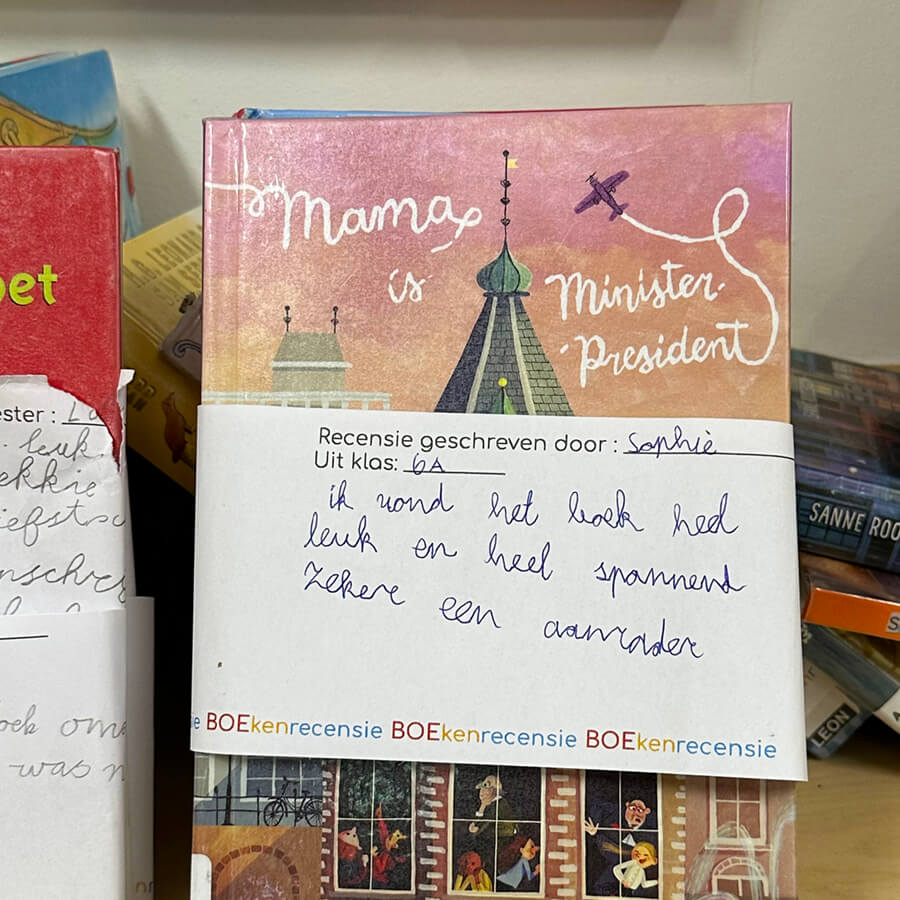 Mama
is
Minister-
-President
Recensie geschreven door : Sophie
Uit klas: 6A
ik vond het boek heel
leuk en heel spannend
zekere een aanrader
BOEkenrecensie BOEkenrecensie BOEkenrecensie
ester :
leuk
ekkie
was
SANNE
LEON